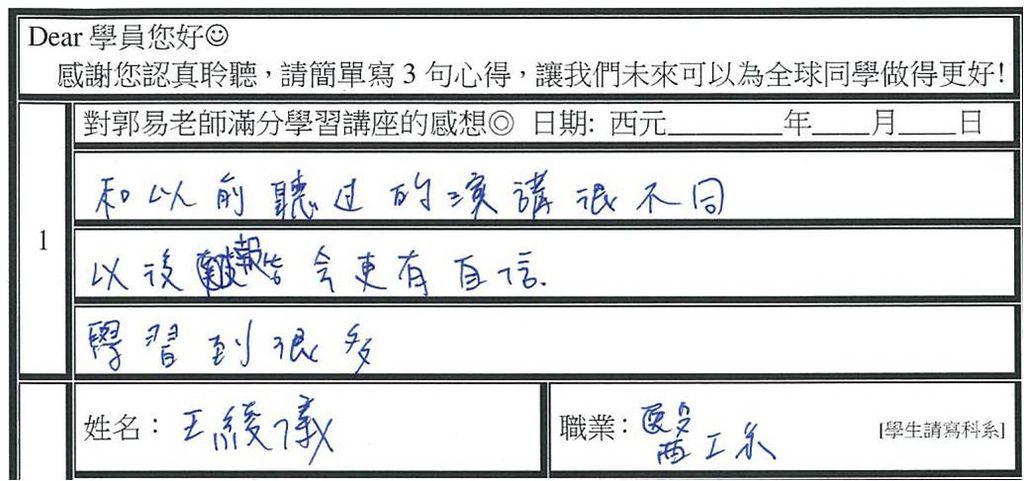 Dear 學員您好☺
感謝您認真聆聽，請簡單寫 3 句心得，讓我們未來可以為全球同學做得更好!
對郭易老師滿分學習講座的感想◎ 日期: 西元________年____月____日
1
和以前聽过的演講很不同
以後報告会更有自信.
學習到很多
姓名：王綾儀
職業：醫工系
[學生請寫科系]